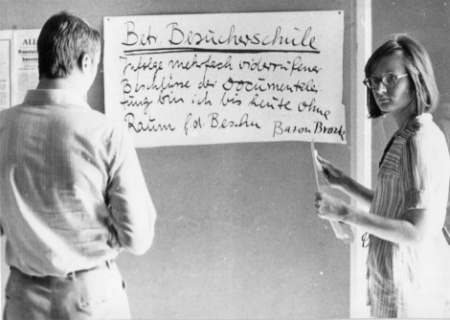 Betr. Besucherschule
infolge mehrfach widerrufener
Beschlüsse der Documentalei-
tung bin ich bis heute ohne
Raum f.d. Beschu Bazon Brock
ALL